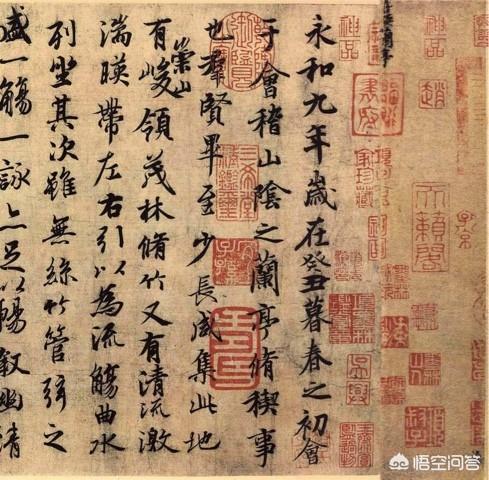 神品
趙
天籟閣
子京
神品
永和九年歲在癸丑暮春之初會
于會稽山陰之蘭亭脩稧事
也羣賢畢至少長咸集此地
有崇山峻領茂林脩竹又有清流激
湍暎帶左右引以為流觴曲水
列坐其次雖無絲竹管弦之
盛一觴一詠亦足以暢敘幽情
悟空问答